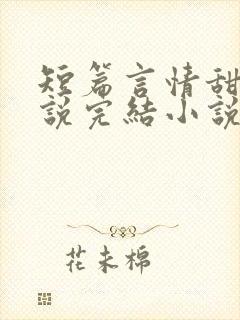 短篇言情甜
說完結小說
花未棉